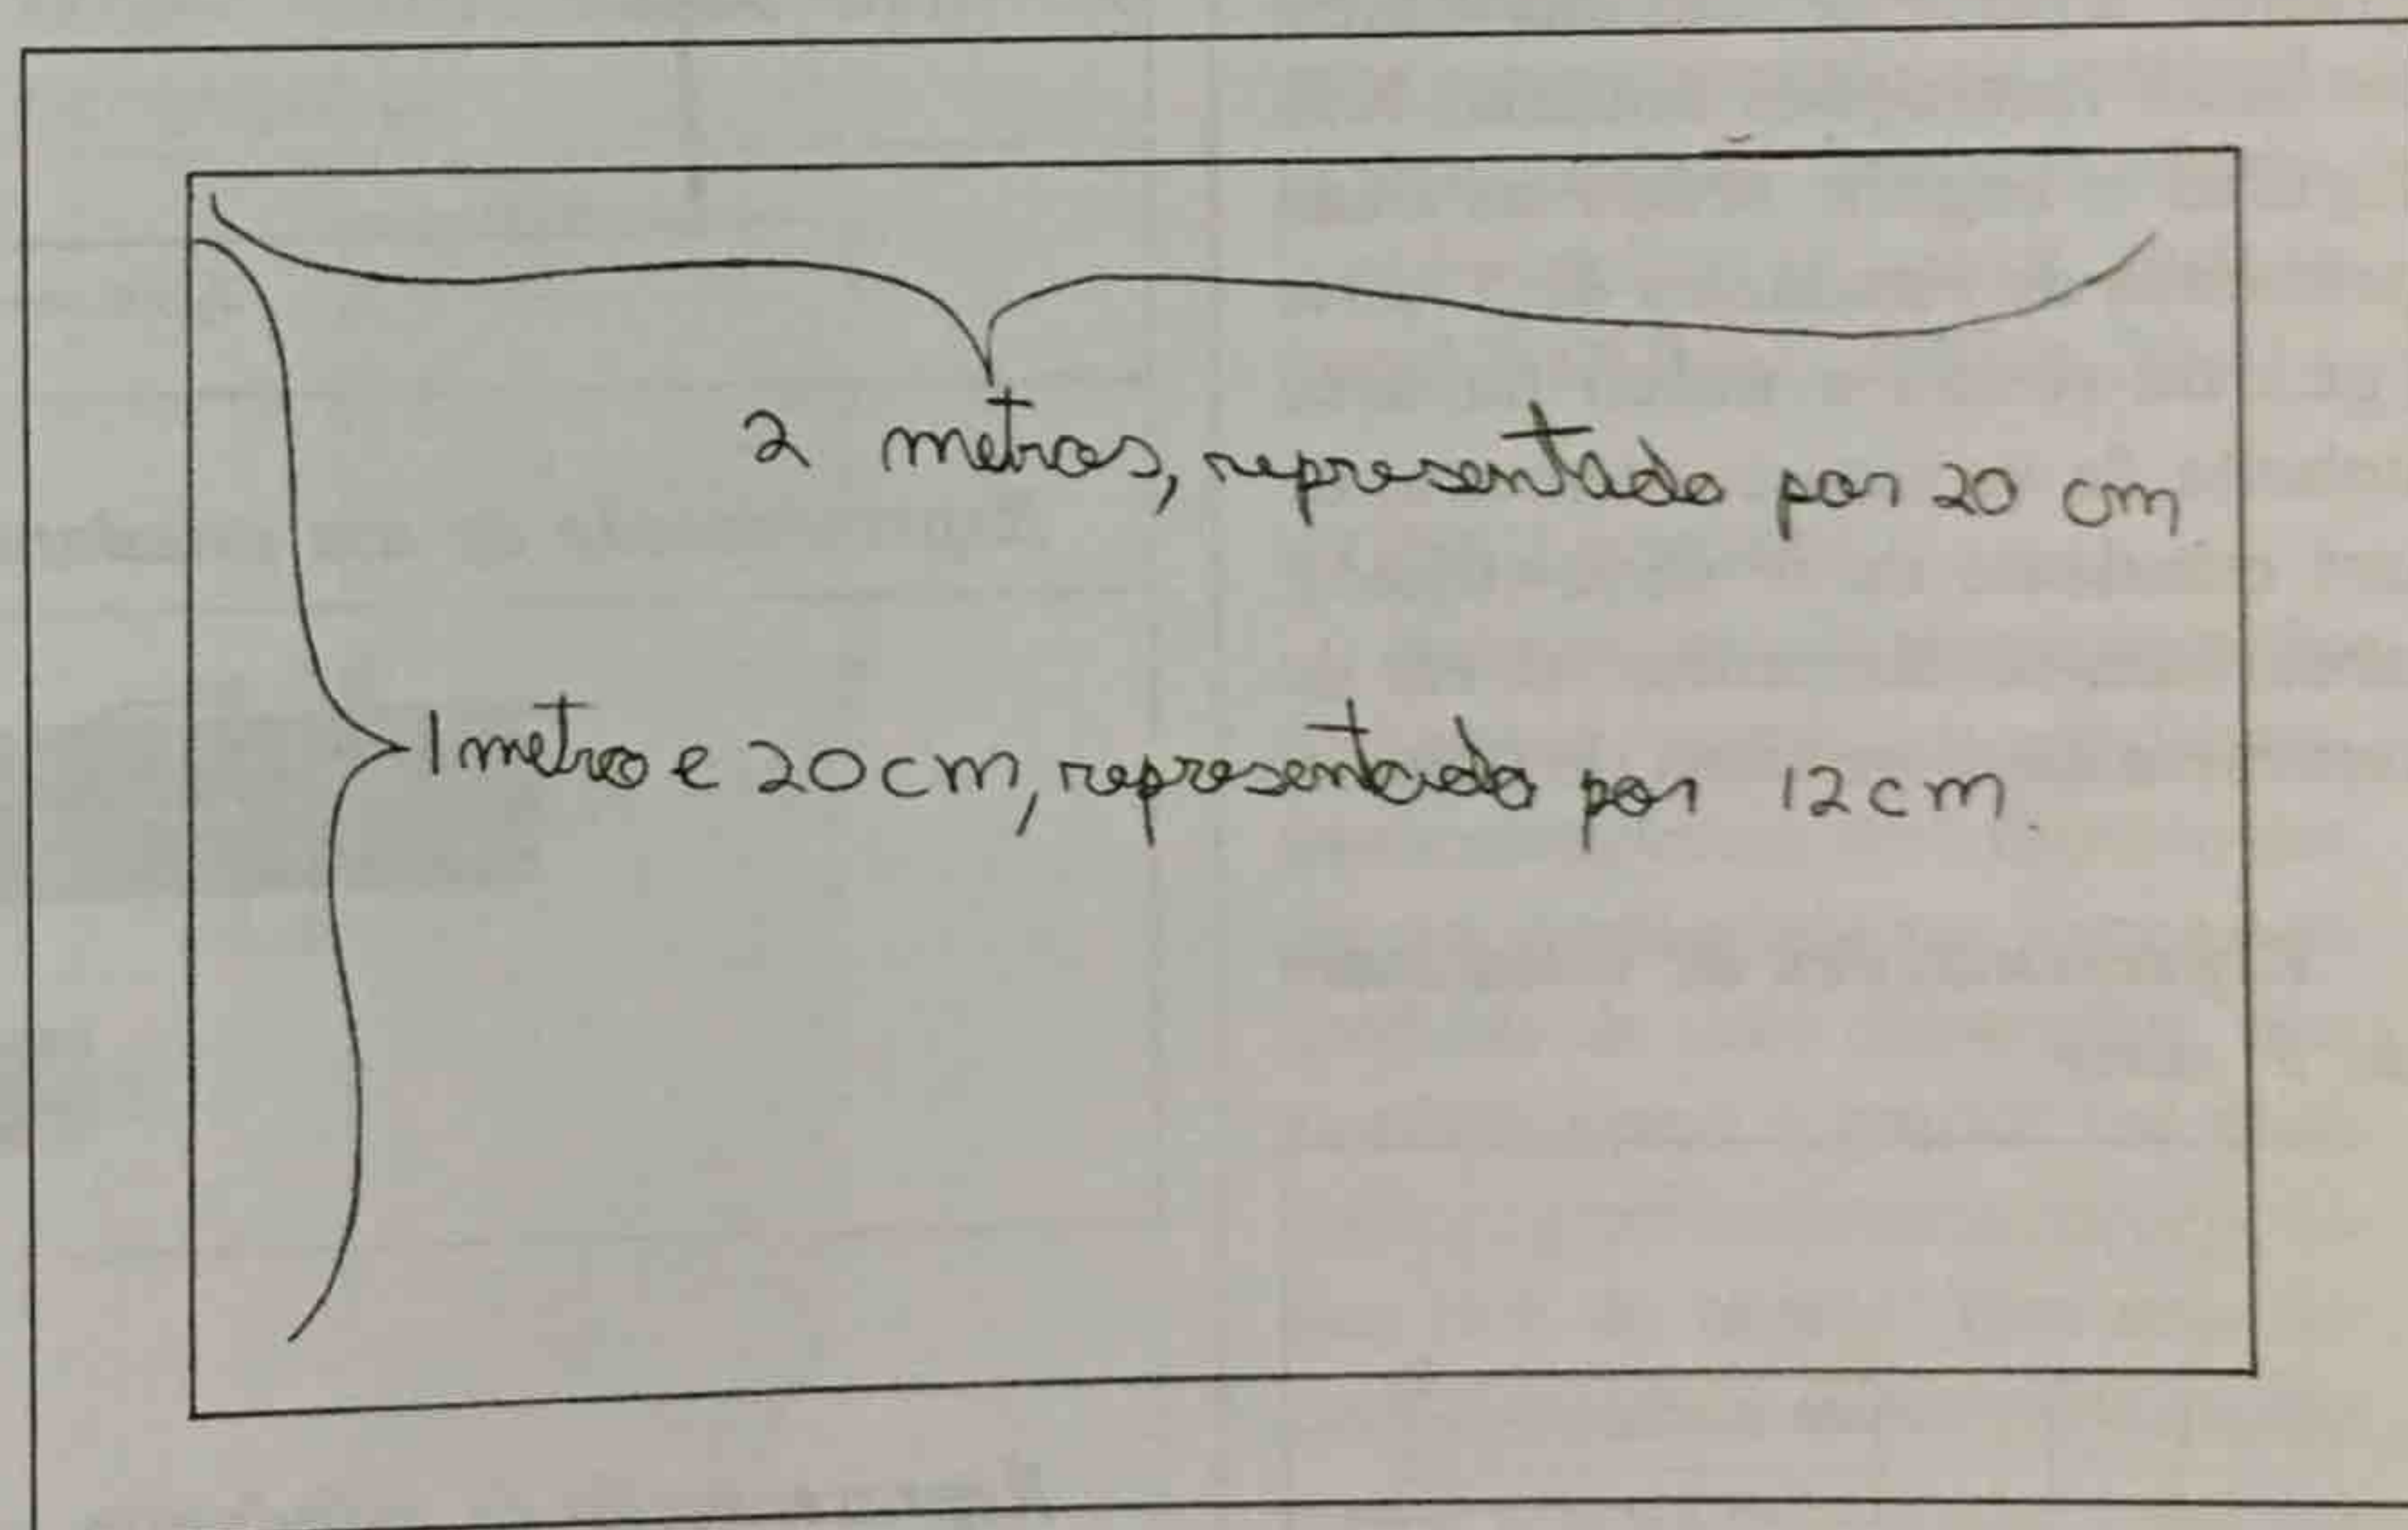 2 metros, representado por 20 cm
1 metro e 20 cm, representado por 12 cm.